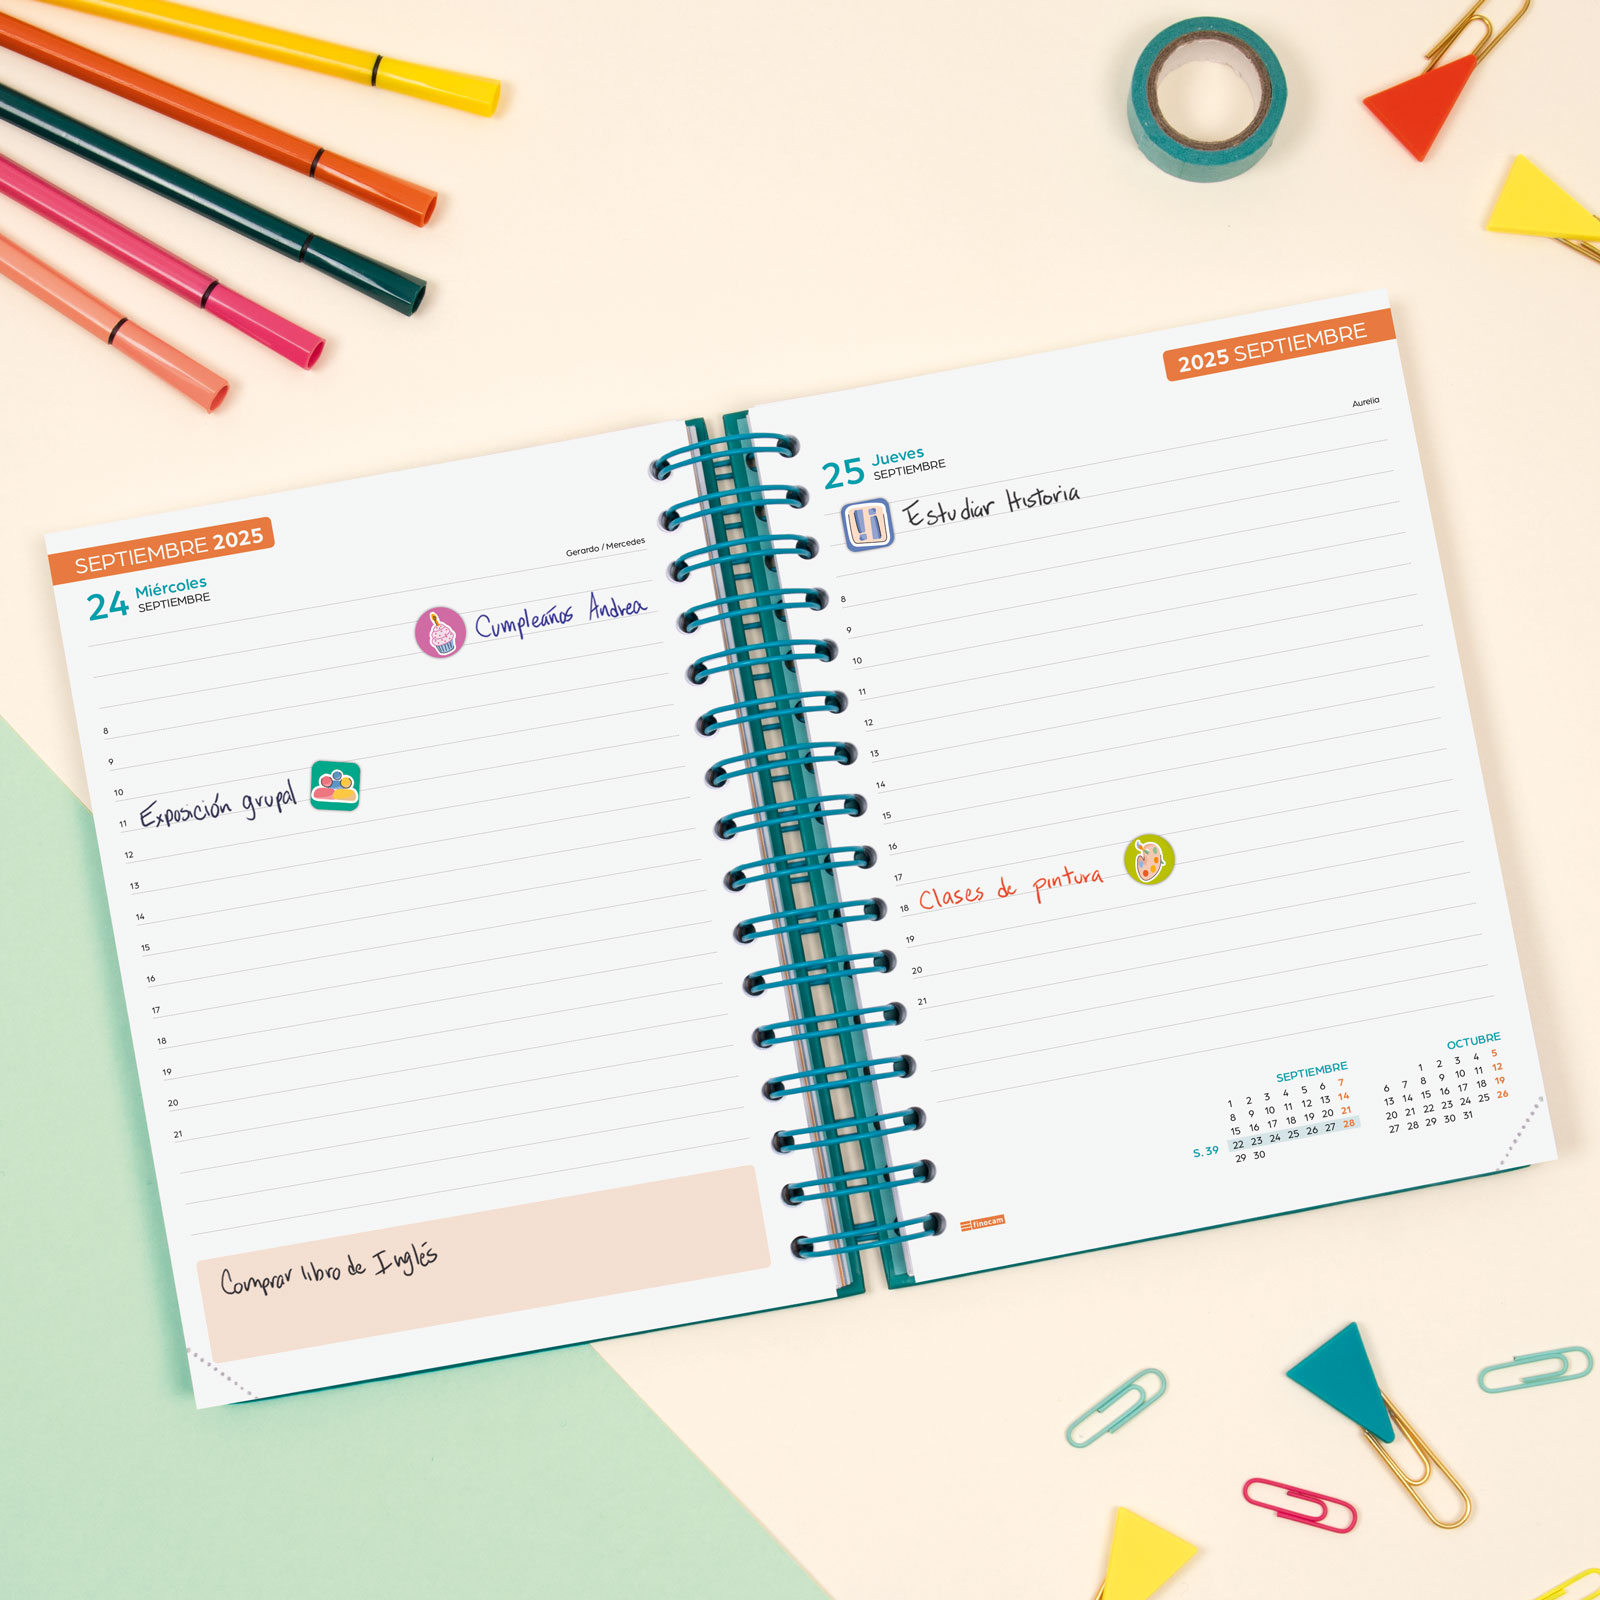 SEPTIEMBRE 2025
24 Miércoles
SEPTIEMBRE
Gerardo / Mercedes
Cumpleaños Andrea
8
9
10
Exposición grupal
11
12
13
14
15
16
17
18
19
20
21
Comprar libro de Inglés
2025 SEPTIEMBRE
Aurelia
25 Jueves
SEPTIEMBRE
Estudiar Historia
8
9
10
11
12
13
14
15
16
17
18 Clases de pintura
19
20
21
SEPTIEMBRE
1 2 3 4 5 6 7
8 9 10 11 12 13 14
15 16 17 18 19 20 21
S. 39 22 23 24 25 26 27 28
29 30
OCTUBRE
1 2 3 4 5
6 7 8 9 10 11 12
13 14 15 16 17 18 19
20 21 22 23 24 25 26
27 28 29 30 31
finocam